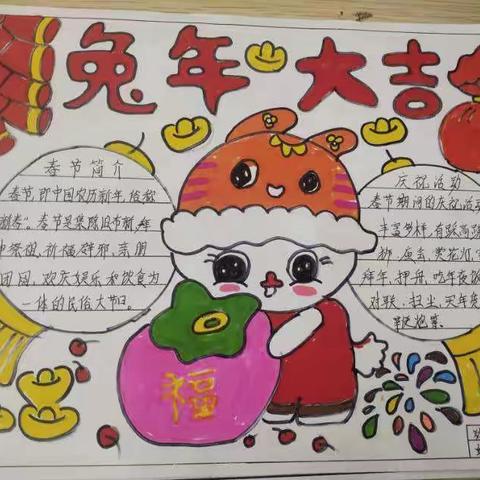 兔年大吉
春节简介
春节,即中国农历新年,俗称
新春"。春节是集除旧布新,拜
神祭祖,祈福辟邪,亲朋
团圆,欢庆娱乐和饮食为
一体的民俗大节日。
庆祝活动
春节期间的庆祝活动
丰富多样,有舞
狮,庙会,赏花
拜年,押舟,吃年夜饭
对联,扫尘,买年货
鞭炮等。
福